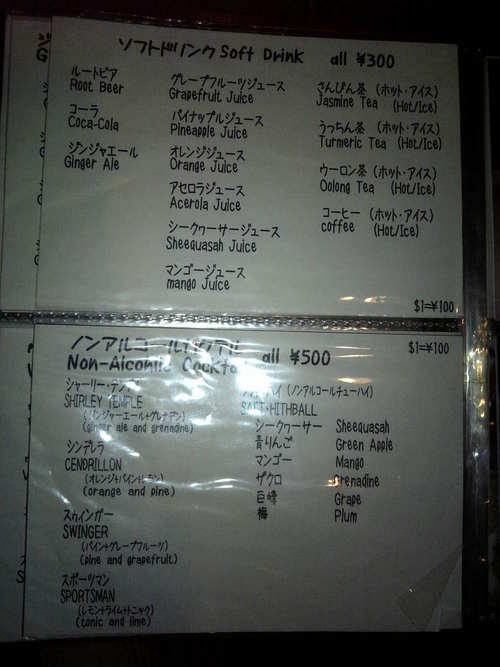 ソフトドリンク Soft Drink all ¥300
ルートビア
Root Beer
コーラ
Coca-Cola
ジンジャエール
Ginger Ale
グレープフルーツジュース
Grapefruit Juice
パイナップルジュース
Pineapple Juice
オレンジジュース
Orange Juice
アセロラジュース
Acerola Juice
シークヮーサージュース
Sheequasah Juice
マンゴージュース
mango Juice
さんぴん茶 (ホット・アイス)
Jasmine Tea (Hot/Ice)
うっちん茶 (ホット・アイス)
Turmeric Tea (Hot/Ice)
ウーロン茶 (ホット・アイス)
Oolong Tea (Hot/Ice)
コーヒー (ホット・アイス)
coffee (Hot/Ice)
$1=¥100
ノンアルコールカクテル
all ¥500
$1=¥100
シャーリー・テンプル
SHIRLEY TEMPLE
(ジンジャーエール+グレナデン)
(ginger ale and grenadine)
シンデレラ
CENDRILLON
(オレンジ+パイン+レモン)
(orange and pine)
スウィンガー
SWINGER
(パイン+グレープフルーツ)
(pine and grapefruit)
スポーツマン
SPORTSMAN
(レモン+ライム+トニック)
(tonic and lime)
(ノンアルコールチューハイ)
シークヮーサー Sheequasah
青りんご Green Apple
マンゴー Mango
ザクロ Grenadine
巨峰 Grape
梅 Plum